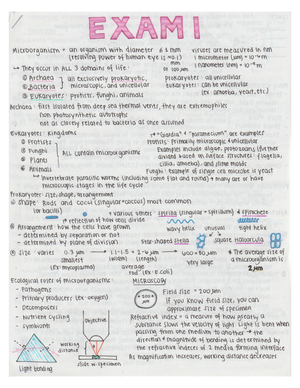 EXAM 1
Microorganism = an organism with diameter ≤ 1 mm
(resolving power of human eye is ~0.1) mm or 100 µm
viruses are measured in nm
1 micrometer (µm) = 10⁻⁶ m
1 nanometer (nm) = 10⁻⁹ m
→ They occur in ALL 3 domains of life:
① Archaea } all exclusively prokaryotic,
② Bacteria } microscopic, and unicellular
③ Eukaryotes: protists, fungi, animals
prokaryotes: all unicellular
eukaryotes: can be unicellular
(ex: amoeba, yeast, etc.)
Archaea: first isolated from deep sea thermal vents, they are extremophiles
non photosynthetic autotrophs
not as closely related to bacteria as once assumed
Eukaryotes: Kingdoms
① Protists
② Fungi
③ Plants
④ Animals
ALL contain microorganisms
"Giardia" & "paramecium" are examples
Protists: Primarily microscopic & unicellular
Examples include algae, protozoans (further
divided based on surface structures: flagella,
cilia, amoeba), and slime molds
Fungi: Example of single cell microbe is yeast
invertebrate parasitic worms (including some flat and round) + many arthro have
microscopic stages in the life cycle
Prokaryotes: size, shape, arrangement
① shape: Rods and cocci (singular = coccus) most common
(or bacilli)
+ various others: spirilla (singular = spirillum) & spirochete
reflection of how cells divide
② Arrangement: how the cells have grown
- determined by separation or not
- determined by plane of division
wavy helix
unusual
tight helix
star-shaped stella
square haloarcula
③ Size: varies
0.3 µm
smallest
(ex: mycoplasma)
average
rod (ex: e.coli)
600 µm
very large
The average size of
a microorganism is
2 µm
Ecological roles of microorganisms:
- Pathogens
- Primary producers (ex: oxygen)
- Decomposers
- Nutrient cycling
- Symbionts
working
distance
Light bending
objective
slide w/ specimen
Microscopy
Field size = 200 µm
If you know field size, you can
approximate size of specimen
Refractive index = a measure of how greatly a
substance slows the velocity of light. Light is bent when
passing from one medium to another →
direction & magnitude of bending is determined by
the refractive indexes of 2 media forming interface
As magnification increases, working distance decreases